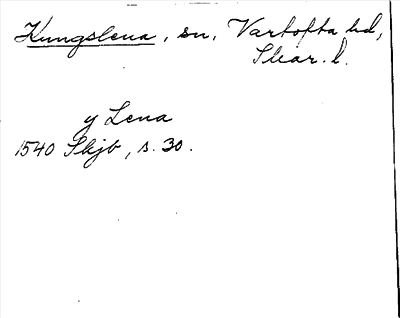 Kungslena, sn, Vartofta hd,
Skar. l.
y Lena
1540 Skjb, s. 30.